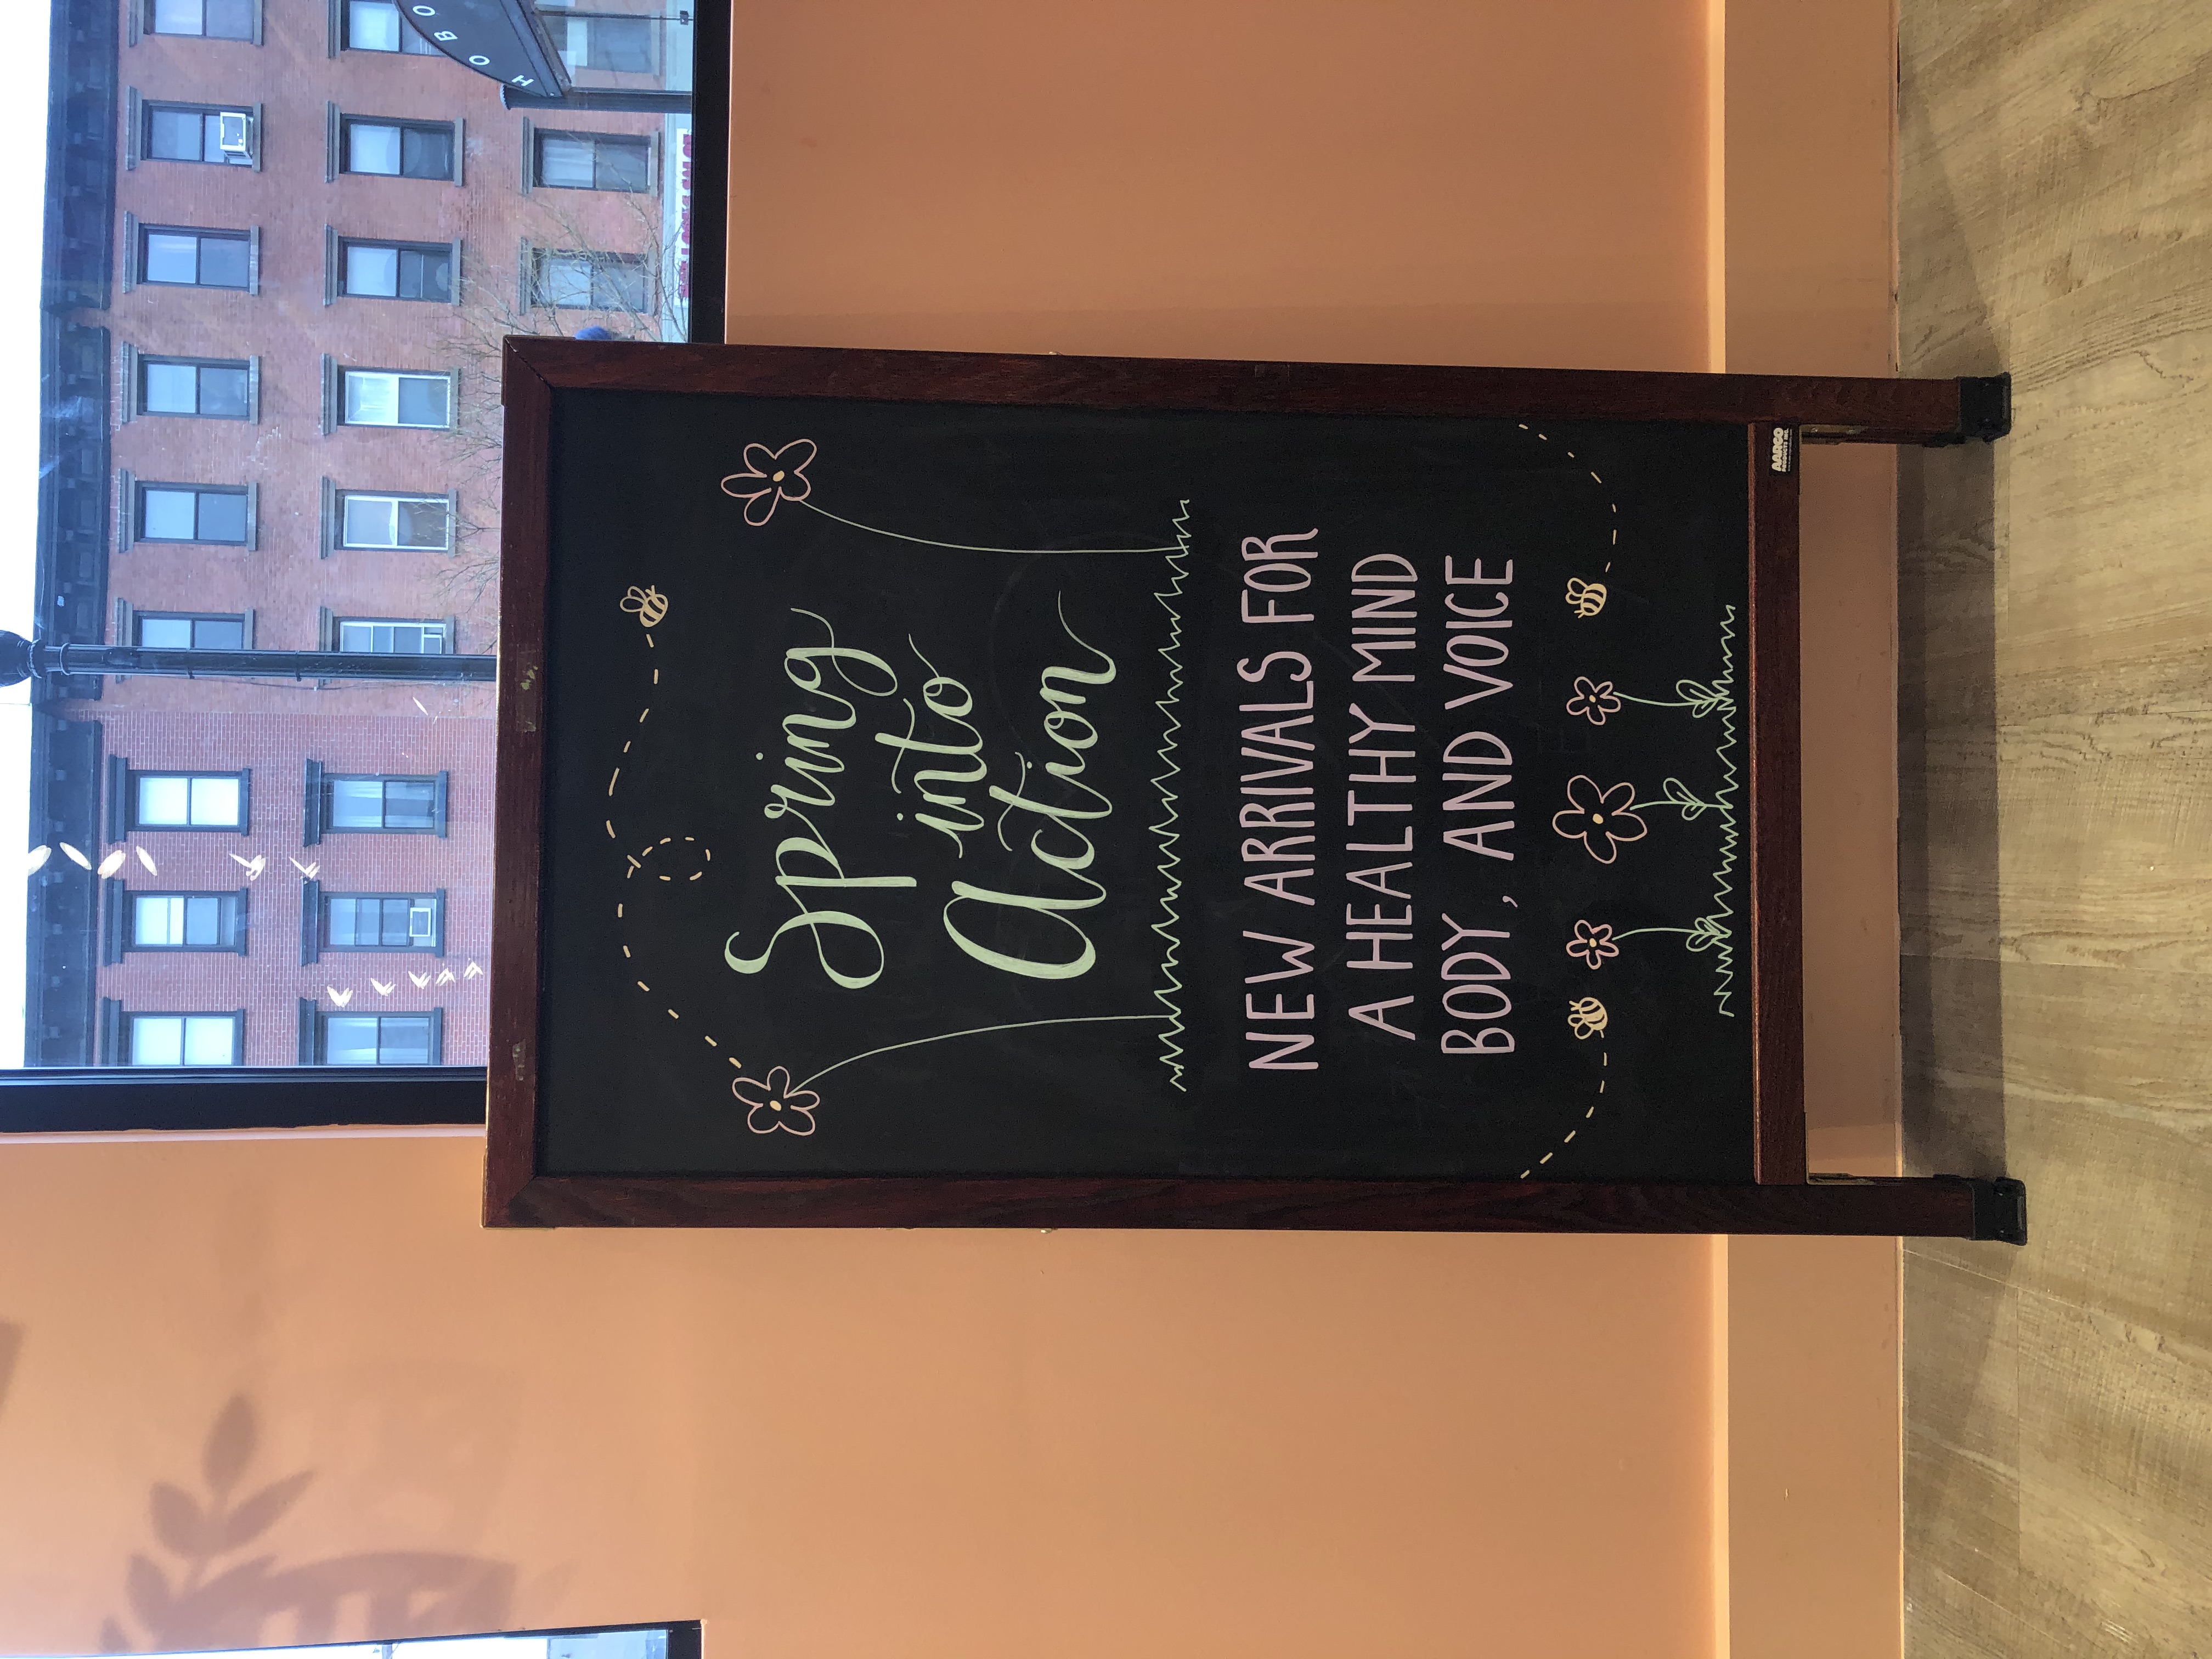 HOBO
Spring
into
Action
NEW ARRIVALS FOR
A HEALTHY MIND
BODY, AND VOICE
AARCO
PRODUCTS INC.